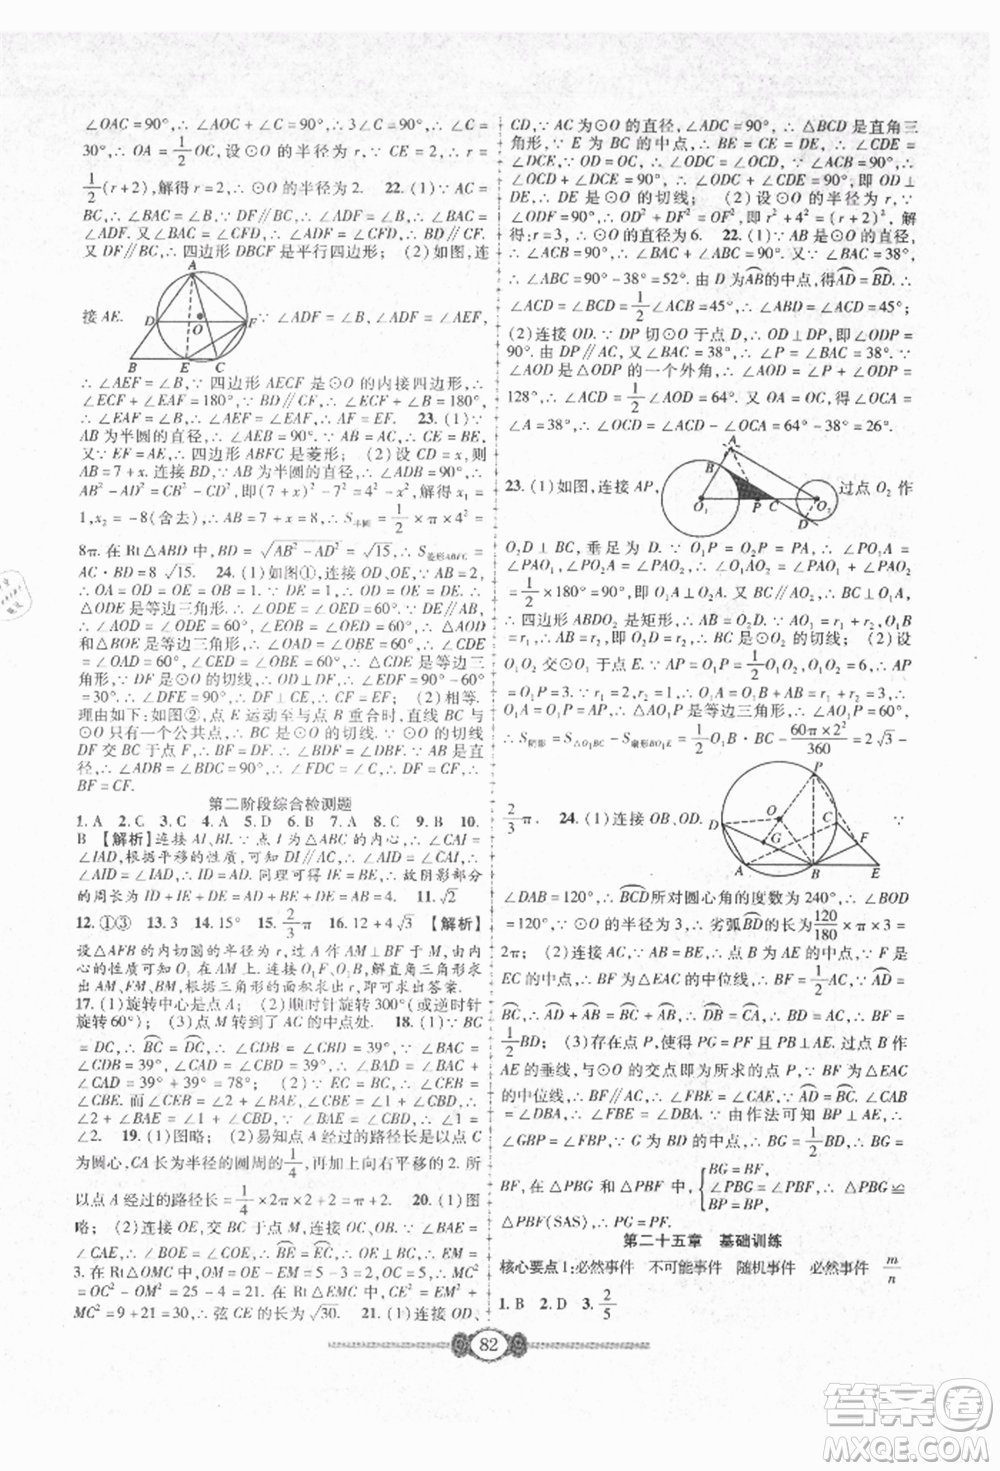 ∠OAC=90°,∴ ∠AOC+∠C=90°,∴ 3∠C=90°,∴ ∠C=
30°,∴ OA=1/2 OC,设⊙O的半径为r,∵ CE=2,∴ r=
1/2(r+2),解得r=2,∴ ⊙O的半径为2. 22. (1)∵ AC=
BC,∴ ∠BAC=∠B,∵ DF∥BC,∴ ∠ADF=∠B,∴ ∠BAC=
∠ADF.又∠BAC=∠CFD,∴ ∠ADF=∠CFD,∴ BD∥CF.
又DF∥BC,∴ 四边形DBCF是平行四边形;(2)如图,连
接AE. A D O F B E C ∵ ∠ADF=∠B,∠ADF=∠AEF,
∴ ∠AEF=∠B.∵ 四边形AECF是⊙O的内接四边形,
∴ ∠ECF+∠EAF=180°,∵ BD∥CF,∴ ∠ECF+∠B=180°,
∴ ∠EAF=∠B,∴ ∠AEF=∠EAF,∴ AF=EF. 23. (1)∵
AB为半圆的直径,∴ ∠AEB=90°.∵ AB=AC,∴ CE=BE.
又∵ EF=AE,∴ 四边形ABFC是菱形;(2)设CD=x,∴ AB
=7+x.连接BD,∵ AB为半圆的直径,∴ ∠ADB=∠BDC=
90°,∴ AB²-AD²=CB²-CD²,∴ (7+x)²-7²=4²-x²,解得x₁=
1,x₂=-8(舍去),∴ AB=7+x=8,∴ S半圆=1/2×π×4²=
8π.在Rt△ABD中,BD=√AB²-AD²=√15,∴ S菱形ABFC=
AC·BD=8√15. 24. (1)如图①,连接OD、OE,∵ OD=
OE=DE,∴ △ODE是等边三角形,∴ ∠ODE=∠OED=60°.
∵ OD∥AB,∴ ∠AOD=∠ODE=60°,∴ △AOD和
△BOE是等边三角形,∴ ∠AOD=∠OBE=60°,∴ ∠CDE
=∠AOD=60°,∠CED=∠OBE=60°,∴ △CDE是等边三角
形.∵ DF是⊙O的切线,∴ OD⊥DF,∴ ∠EDF=90°-60°
=30°,∴ ∠DFE=90°,∴ DF⊥CE,∴ CF=EF;(2)相等.
理由如下:如图②,点E运动至与点B重合时,直线BC与
⊙O只有一个公共点,∴ BC是⊙O的切线.∵ ⊙O的切线
DF交BC于点F,∴ BF=DF,∴ ∠BDF=∠DBF.∵ AB是直
径,∴ ∠ADB=∠BDC=90°,∴ ∠FDC=∠C,∴ DF=CF,
∴ BF=CF.
第二阶段综合检测题
1. A 2. C 3. C 4. A 5. A 6. D 7. C 8. C 9. B 10.
B 【解析】连接AI、BI.∵ 点I为△ABC的内心,∴ ∠CAI=
∠IAD,根据平移的性质,可知DI∥AC,∴ ∠CAI=∠AID,
∴ ∠AID=∠IAD,∴ AD=ID.同理可得EI=BE,故阴影部分
的周长为ID+IE+DE=AD+BE+DE=AB=4. 11. √2
12. ①③ 13. 3 14. 15° 15. 2/3 π 16. 12+4√3 【解析】
设△AFB的内切圆的半径为r,过A作AM⊥BF于M,由内
心的性质可知O₁在AM上,根据含30°角的直角三角形求出
AM、BM,再根据直角三角形求出r,即可求出答案.
17. (1)旋转中心是点A;(2)顺时针旋转300°(或逆时针
旋转60°);(3)点M转到了AC的中点处. 18. (1)∵ BC
=DC,∴ BC=DC,∴ ∠CDB=∠CBD=39°,∴ ∠BAC=
∠CDB=39°,∠CAD=∠CBD=39°,∴ ∠BAD=∠BAC+
∠CAD=39°+39°=78°;(2)∵ EC=BC,∴ ∠CBE=∠CEB,
而∠CEB=∠2+∠BAE,∠CBE=∠1+∠CBD,∴ ∠2+
∠BAE=∠1+∠CBD,∵ ∠BAE=∠CBD,∴ ∠1=
∠2. 19. (1)图略;(2)易知点A经过的路径长是以点C
为圆心,CA长为半径的圆周的1/4,再往右平移的2.所
以点A经过的路径长=1/4×2π×4+2=2π+2. 20. (1)图
略;(2)连接OE,交BC于点M,连接OC.∵ ∠BAE=
∠CAE,∴ BE=EC,∴ OE⊥BC,∵ EM=3,∴ OM=5-3=
2.在Rt△OMC中,MC²=OC²-OM²=25-4=21.在Rt△EMC中,CE²=EM²+
MC²=9+21=30,∴ 弦CE的长为√30. 21. (1)连接OD、
CD,∵ AC为⊙O的直径,∠ADC=90°,∴ △BCD是直角三
角形,∵ E为BC的中点,∴ BE=CE=DE,∴ ∠CDE=
∠DCE,∵ OD=OC,∴ ∠ODC=∠OCD,∵ ∠ACB=90°,
∴ ∠OCD+∠DCE=90°,∴ ∠ODC+∠CDE=90°,即OD⊥
DE,∴ DE是⊙O的切线;(2)设⊙O的半径为r,∵
∠ODF=90°,∴ OD²+DF²=OF²,即r²+4²=(r+2)²,解
得:r=3,∴ ⊙O的直径为6. 22. (1)∵ AB是⊙O的直径,
∴ ∠ACB=90°,∵ ∠BAC=38°,∴ ∠ABC=
90°-∠BAC=90°-38°=52°.由D为AB的中点,得AD=BD,∴
∠ACD=∠BCD=1/2∠ACB=45°,∴ ∠ABD=∠ACD=45°;
(2)连接OD.∵ DP切⊙O于点D,∴ OD⊥DP,即∠ODP=
90°.由DP∥AC,又∠BAC=38°,∴ ∠P=∠BAC=38°,∵
∠AOD是△ODP的一个外角,∴ ∠AOD=∠P+∠ODP=
128°,∴ ∠ACD=1/2∠AOD=64°.又OA=OC,∴ ∠OCA=
∠A=38°,∴ ∠OCD=∠ACD-∠OCA=64°-38°=26°.
23. (1)如图,连接AP, A B O₁ P C O₂ D 过点O₂作
O₂D⊥BC,垂足为D.∵ O₁P=O₂P=PA,∴ ∠BAO₂=
∠PAO₁+∠PAO₂=∠PO₁A+∠PO₂A,∴ ∠BAO₂=
1/2×180°=90°,∵ BC是⊙O₁的切线,∴ ∠ABD=90°,
∴ 四边形ABDO₂是矩形,∴ AB=O₂D.∵ O₁A=r₁+r₂,
∴ O₂D=r₂,∴ 直线BC是⊙O₂的切线;(2)设
O₁O₂交⊙O₁于点E.∵ AP=O₁P=1/2O₁O₂=6÷2=3,∴
O₁A=O₁P=AP,∴ △O₁AP是等边三角形,∴ ∠BO₁C=60°,
∴ S阴影=S△O₁BC-S扇形BO₁E=1/2O₁B·BC-60π×2²/360=2√3-
2/3 π. 24. (1)连接OB、OD. P D O C G F A B E ∵
∠DAB=120°,∴ BCD所对圆心角的度数为240°,∴ ∠BOD
=120°,∵ ⊙O的半径为3,∴ 劣弧BD的长为120/180×π×3=
2π;(2)连接AC,∵ AB=BE,∴ 点B为AE的中点,∵ F是
EC的中点,∴ BF为△EAC的中位线,∴ BF=1/2AC,∵ AD=
BC,∴ AD+AB=BC+AB,∴ DAB=CBA,∴ BD=AC,∴ BF=
1/2BD;(3)存在点P,使得PG=PF,理由如下:过点B作
AE的垂线,与⊙O的交点即为所求的点P.∵ BF为△EAC
的中位线,∴ BF∥AC,∴ ∠FBE=∠CAE,∵ AD=BC,∴ ∠CAB=
∠DBA,∴ ∠FBE=∠DBA,∵ 由作法可知BP⊥AE,∴
∠GBP=∠FBP,∵ G为BD的中点,∴ BG=1/2BD,∴ BG=
BF,在△PBG和△PBF中, BG=BF, ∠PBG=∠PBF, BP=BP ∴ △PBG≌
△PBF(SAS),∴ PG=PF.
第二十五章 基础训练
核心要点1:必然事件 不可能事件 随机事件 必然事件 m/n
1. B 2. D 3. 2/5
82
答案圈
MXQE.COM